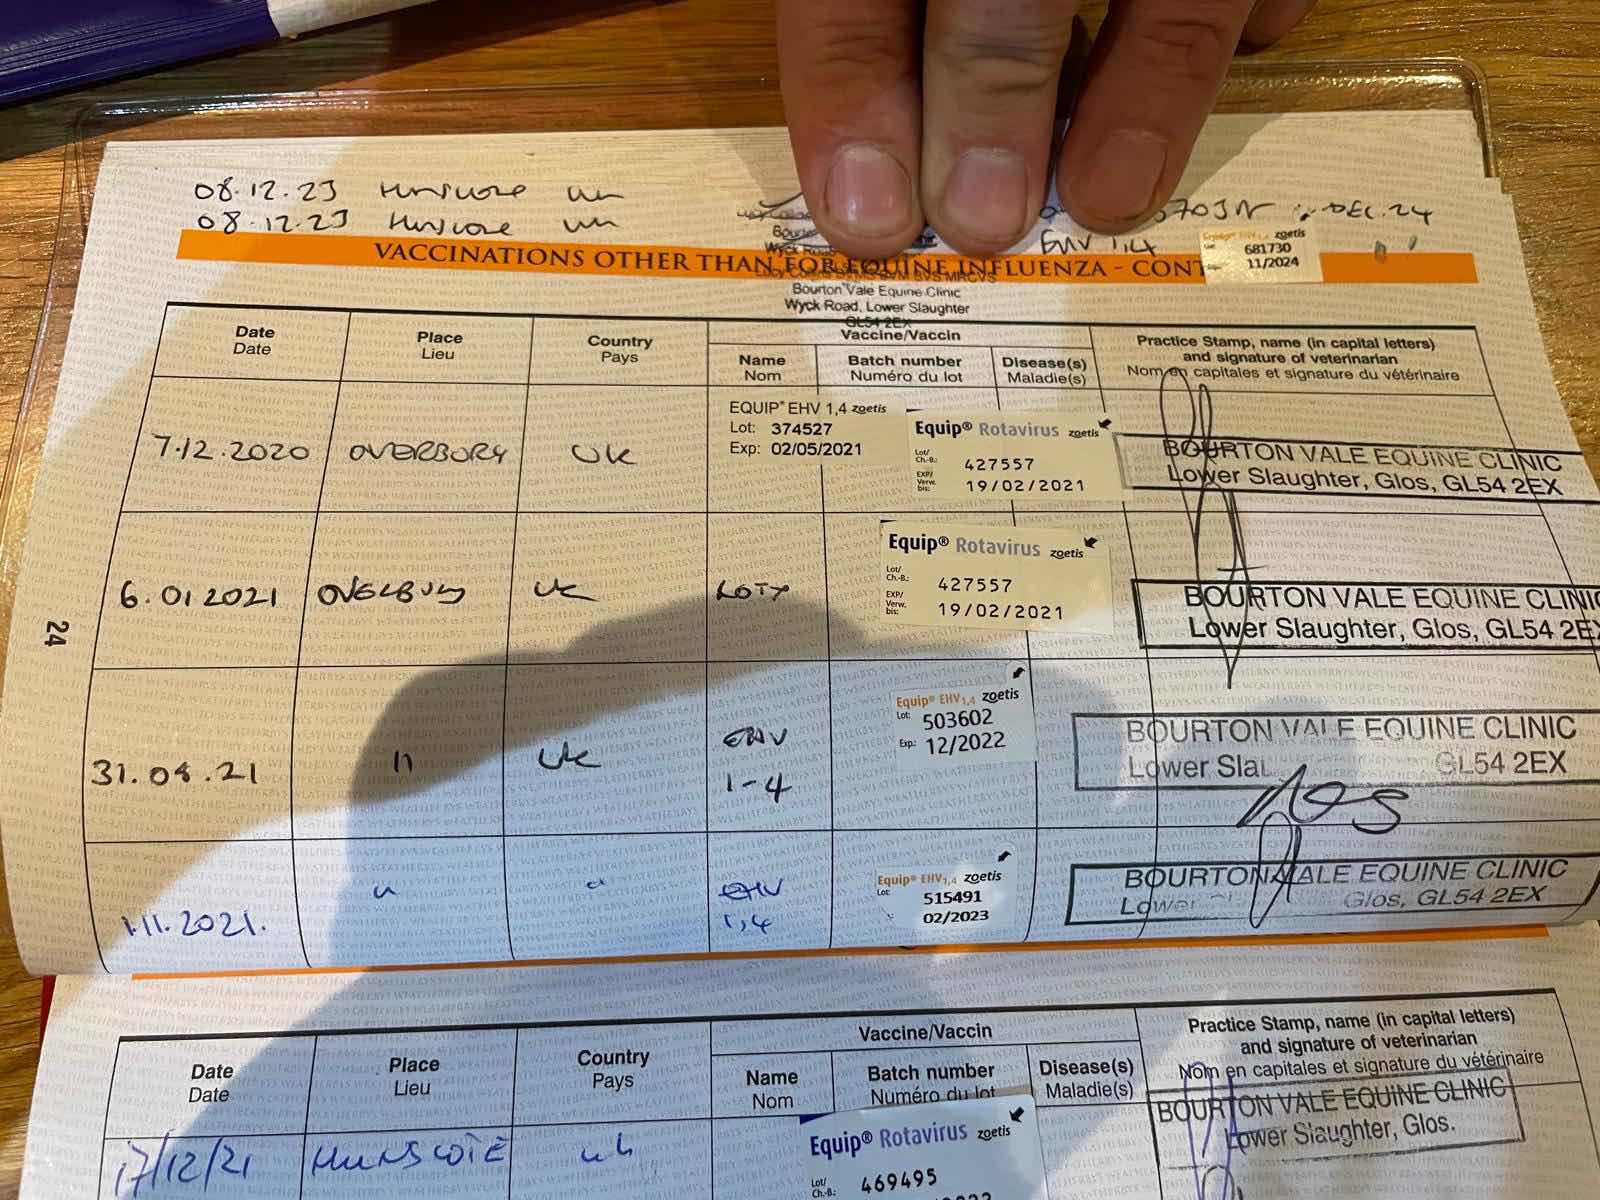 08.12.23 Hunscote UK
08.12.23 Hunscote UK DEC.24
EHV 1,4 zoetis
681730
11/2024
VACCINATIONS OTHER THAN FOR EQUINE INFLUENZA - CONT
Bourton Vale Equine Clinic
Wyck Road, Lower Slaughter
GL54 2EX
Date Place Country Vaccine/Vaccin Practice Stamp, name (in capital letters)
Date Lieu Pays and signature of veterinarian
Name Batch number Disease(s) Nom en capitales et signature du vétérinaire
Nom Numéro du lot Maladie(s)
7.12.2020 OVERBURY UK
EQUIP® EHV 1,4 zoetis
Lot: 374527
Exp: 02/05/2021
Equip® Rotavirus zoetis
Lot/
Ch.-B.: 427557
EXP/
Verw.
bis: 19/02/2021
BOURTON VALE EQUINE CLINIC
Lower Slaughter, Glos, GL54 2EX
6.01 2021 OVERBURY UK
Equip® Rotavirus zoetis
Lot/
Ch.-B.: 427557
EXP/
Verw.
bis: 19/02/2021
BOURTON VALE EQUINE CLINIC
Lower Slaughter, Glos, GL54 2EX
24
31.08.21 11 UK EHV
1-4
Equip® EHV1,4 zoetis
Lot: 503602
Exp.: 12/2022
BOURTON VALE EQUINE CLINIC
Lower Slau GL54 2EX
1.11.2021. " " EHV
1,4
Equip® EHV1,4 zoetis
Lot: 515491
02/2023
BOURTON VALE EQUINE CLINIC
Lower Glos, GL54 2EX
Date Place Country Vaccine/Vaccin Practice Stamp, name (in capital letters)
Date Lieu Pays and signature of veterinarian
Name Batch number Disease(s) Nom en capitales et signature du vétérinaire
Nom Numéro du lot Maladie(s)
17/12/21 HUNSCOTE UK
Equip® Rotavirus zoetis
Lot/
Ch.-B.: 469495
BOURTON VALE EQUINE CLINIC
Lower Slaughter, Glos.